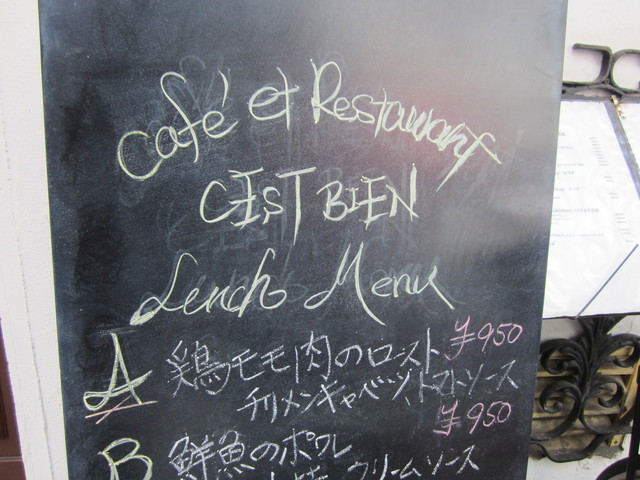 Café et Restaurant
C'EST BIEN
Lunch Menu
A 鶏モモ肉のロースト ¥950
チリメンキャベツ、トマトソース
¥950
B 鮮魚のポワレ
クリームソース